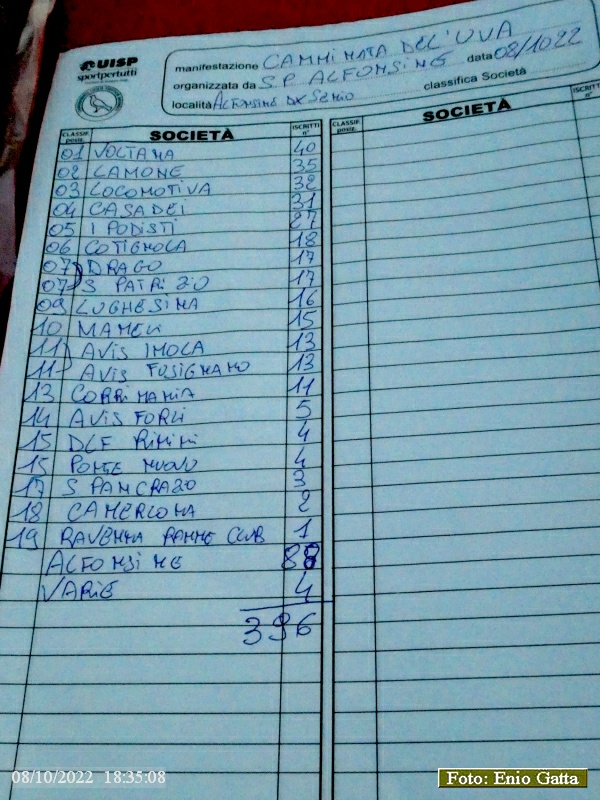 UISP
sportpertutti
manifestazione CAMMINATA DEL'UVA
organizzata da S.P. ALFONSINE data 08/1022
località ALFONSINE DX SENIO classifica Società
CLASSIF. posiz. SOCIETÀ ISCRITTI n°
CLASSIF. posiz. SOCIETÀ ISCRITTI n°
01 VOLTANA 40
02 LAMONE 35
03 LOCOMOTIVA 32
04 CASADEI 31
05 I PODISTI 27
06 COTIGNOLA 18
07 DRAGO 17
07 S PATRIZIO 17
09 LUGHESINA 16
10 MAMELI 15
11 AVIS IMOLA 13
11 AVIS FUSIGNANO 13
13 CORRIMANIA 11
14 AVIS FORLI 5
15 DLF RIMINI 4
15 PONTE NUOVO 4
17 S PANCRAZO 3
18 CAMERLONA 2
19 RAVENNA RANNE CLUB 1
ALFONSINE 88
VARIE 4
396
08/10/2022 18:35:08
Foto: Enio Gatta